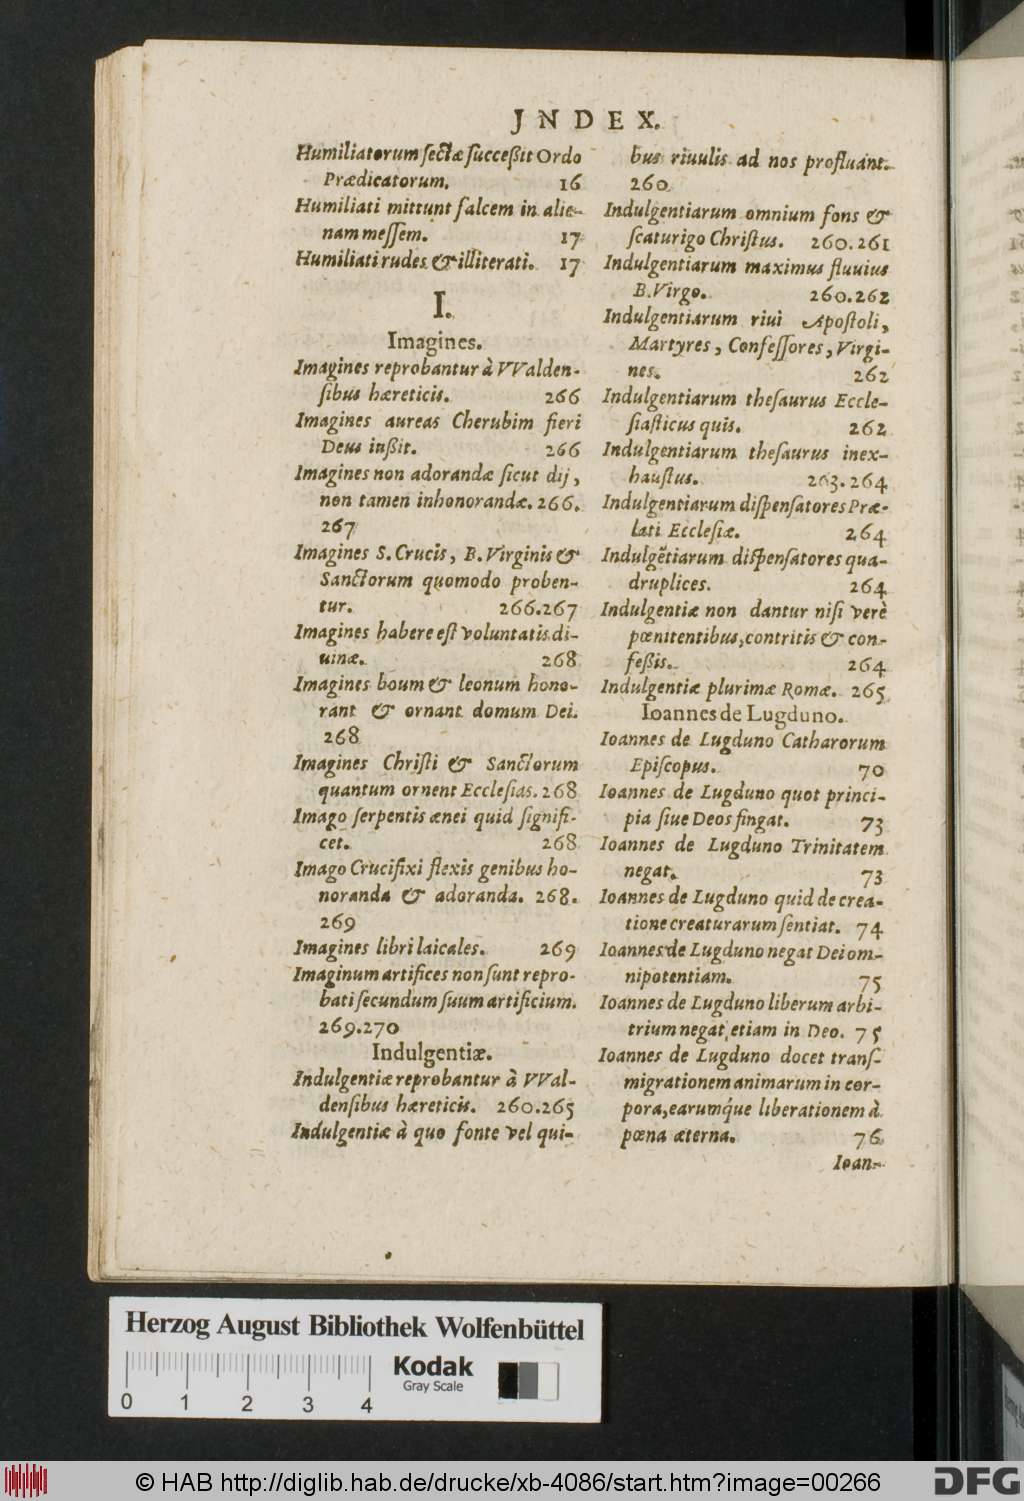 JNDEX.
Humiliatorum sectæ succeßit Ordo
Prædicatorum. 16
Humiliati mittunt falcem in alie-
nam messem. 17
Humiliati rudes & illiterati. 17
I.
Imagines.
Imagines reprobantur à VValden-
sibus hæreticis. 266
Imagines aureas Cherubim fieri
Deus iußit. 266
Imagines non adorandæ sicut dij,
non tamen inhonorandæ. 266.
267
Imagines S. Crucis, B. Virginis &
Sanctorum quomodo proben-
tur. 266.267
Imagines habere est voluntatis di-
uinæ. 268
Imagines boum & leonum hono-
rant & ornant domum Dei.
268
Imagines Christi & Sanctorum
quantum ornent Ecclesias. 268
Imago serpentis ænei quid signifi-
cet. 268
Imago Crucifixi flexis genibus ho-
noranda & adoranda. 268.
269
Imagines libri laicales. 269
Imaginum artifices non sunt repro-
bati secundum suum artificium.
269.270
Indulgentiæ.
Indulgentiæ reprobantur à VVal-
densibus hæreticis. 260.265
Indulgentiæ à quo fonte vel qui-
bus riuulis ad nos profluant.
260
Indulgentiarum omnium fons &
scaturigo Christus. 260.261
Indulgentiarum maximus fluuius
B. Virgo. 260.262
Indulgentiarum riui Apostoli,
Martyres, Confessores, Virgi-
nes. 262
Indulgentiarum thesaurus Eccle-
siasticus quis. 262
Indulgentiarum thesaurus inex-
haustus. 263.264
Indulgentiarum dispensatores Præ-
lati Ecclesiæ. 264
Indulgẽtiarum dispensatores qua-
druplices. 264
Indulgentiæ non dantur nisi verè
pœnitentibus, contritis & con-
feßis. 264
Indulgentiæ plurimæ Romæ. 265
Ioannes de Lugduno.
Ioannes de Lugduno Catharorum
Episcopus. 70
Ioannes de Lugduno quot princi-
pia siue Deos fingat. 73
Ioannes de Lugduno Trinitatem
negat. 73
Ioannes de Lugduno quid de crea-
tione creaturarum sentiat. 74
Ioannes de Lugduno negat Dei om-
nipotentiam. 75
Ioannes de Lugduno liberum arbi-
trium negat, etiam in Deo. 75
Ioannes de Lugduno docet trans-
migrationem animarum in cor-
pora, earumq́ue liberationem à
pœna æterna. 76
Ioan-
Herzog August Bibliothek Wolfenbüttel
Kodak
Gray Scale
0 1 2 3 4
© HAB http://diglib.hab.de/drucke/xb-4086/start.htm?image=00266
DFG